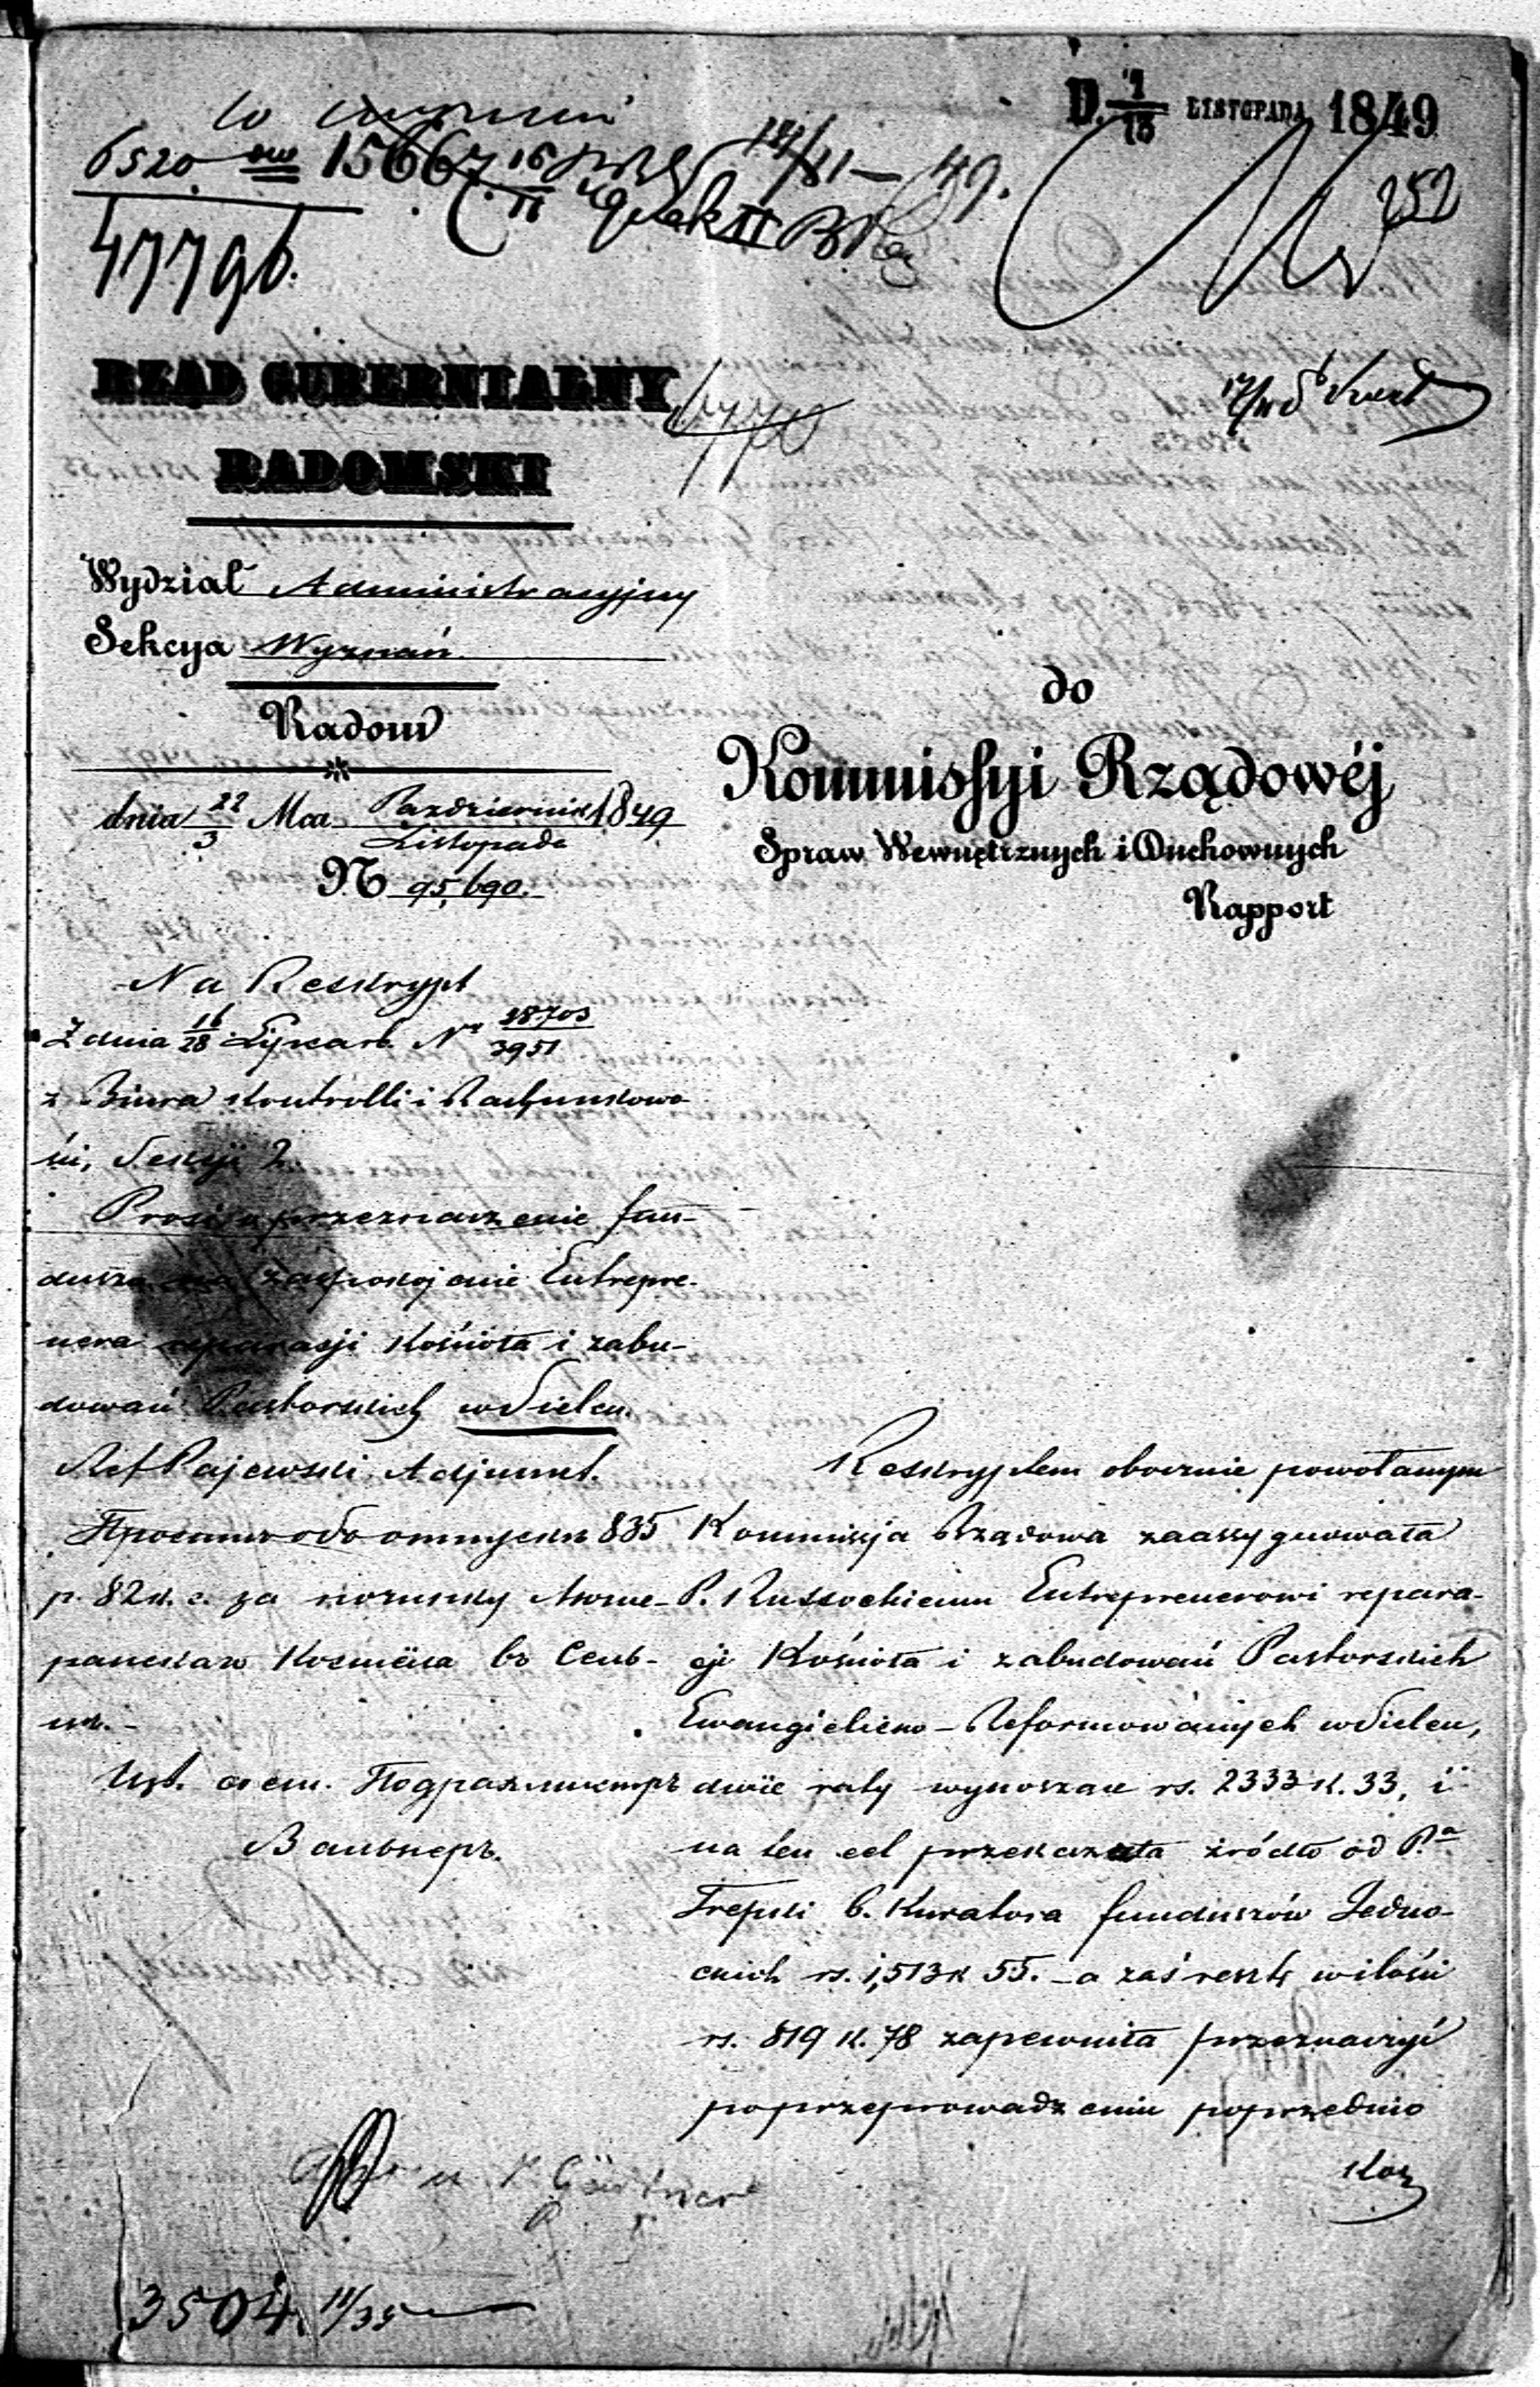 D. 1/13 LISTOPADA 1849
6520 15667 16/11 14/11 – 49.
47796.
252
RZĄD GUBERNIALNY
RADOMSKI
17/11
Wydział Administracyjny
Sekcya Wyznań.
Radom
dnia 22/3 Mca Październik/Listopada 1849
N 95,690.
do
Kommissyi Rządowéj
Spraw Wewnętrznych i Duchownych
Rapport
Na Reskrypt
Z dnia 16/28 Lipca r.b. Nr 28703/3951
z Biura Kontrolli i Rachunkowo
ści, Sekcyi 2.
Prosi o przeznaczenie fun-
duszu na zaspokojenie Entrepre-
nera reparacji Kościoła i zabu-
dowań Pastorskich w Sielcu.
Ref Pajewski Adjunkt.
835
р. 82 к. с. за
Reskryptem obocznie powołanym
Kommissja Rządowa zaassygnowała
P. Russockiemu Entreprenerowi repara-
cji Kościoła i zabudowań Pastorskich
Ewangielicko-Reformowanych w Sielcu,
dwie raty wynoszące rs. 2333 k. 33, i
na ten cel przekazała źródło od Pa
Trepki b. Kuratora funduszów Jedno-
ckich rs. 1,513 k 55. – a zaś resztę w ilości
rs. 819 k. 78 zapewniła przeznaczyć
po przeprowadzeniu poprzednio
3504 11/35